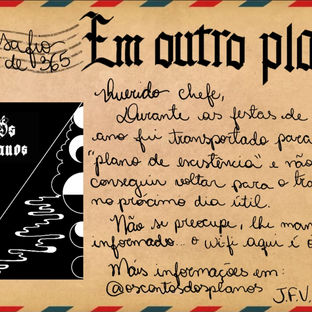 safio
de 365
Em outro pla
Os
anos
Querido chefe,
Durante as festas de
ano fui transportado para
"plano de existência" e não
conseguir voltar para o tra
no próximo dia útil.
Não se preocupe, lhe man
informado... o wifi aqui é ó
Máis informações em:
@oscontosdosplanos
J.F.V.